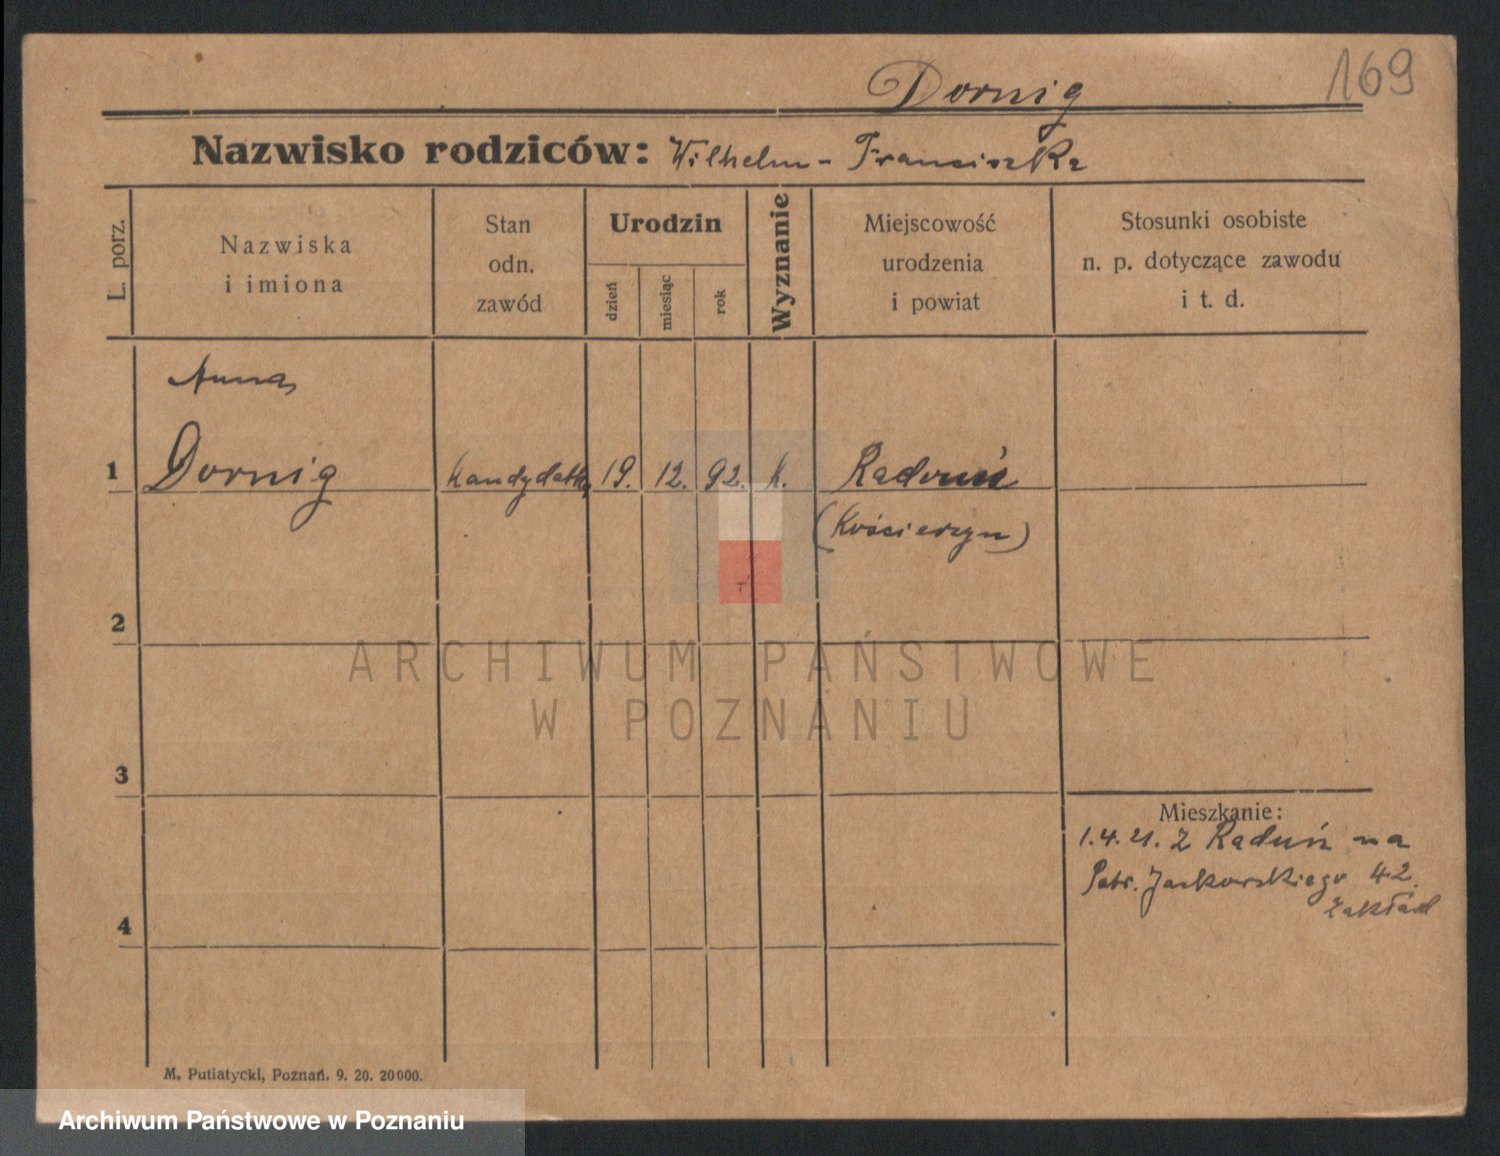 169
Dornig
Nazwisko rodziców: Wilhelm - Franciszka
L. porz.
Nazwiska
i imiona
Stan
odn.
zawód
Urodzin
dzień
miesiąc
rok
Wyznanie
Miejscowość
urodzenia
i powiat
Stosunki osobiste
n. p. dotyczące zawodu
i t. d.
Anna
1 Dornig kandydatka 19. 12. 92. k. Raduń
(Kościerzyn)
2
ARCHIWUM PAŃSTWOWE
W POZNANIU
3
Mieszkanie:
1.4.21. z Raduń na
Patr. Jackowskiego 42.
zakład
4
M. Putiatycki, Poznań. 9. 20. 20000.
Archiwum Państwowe w Poznaniu